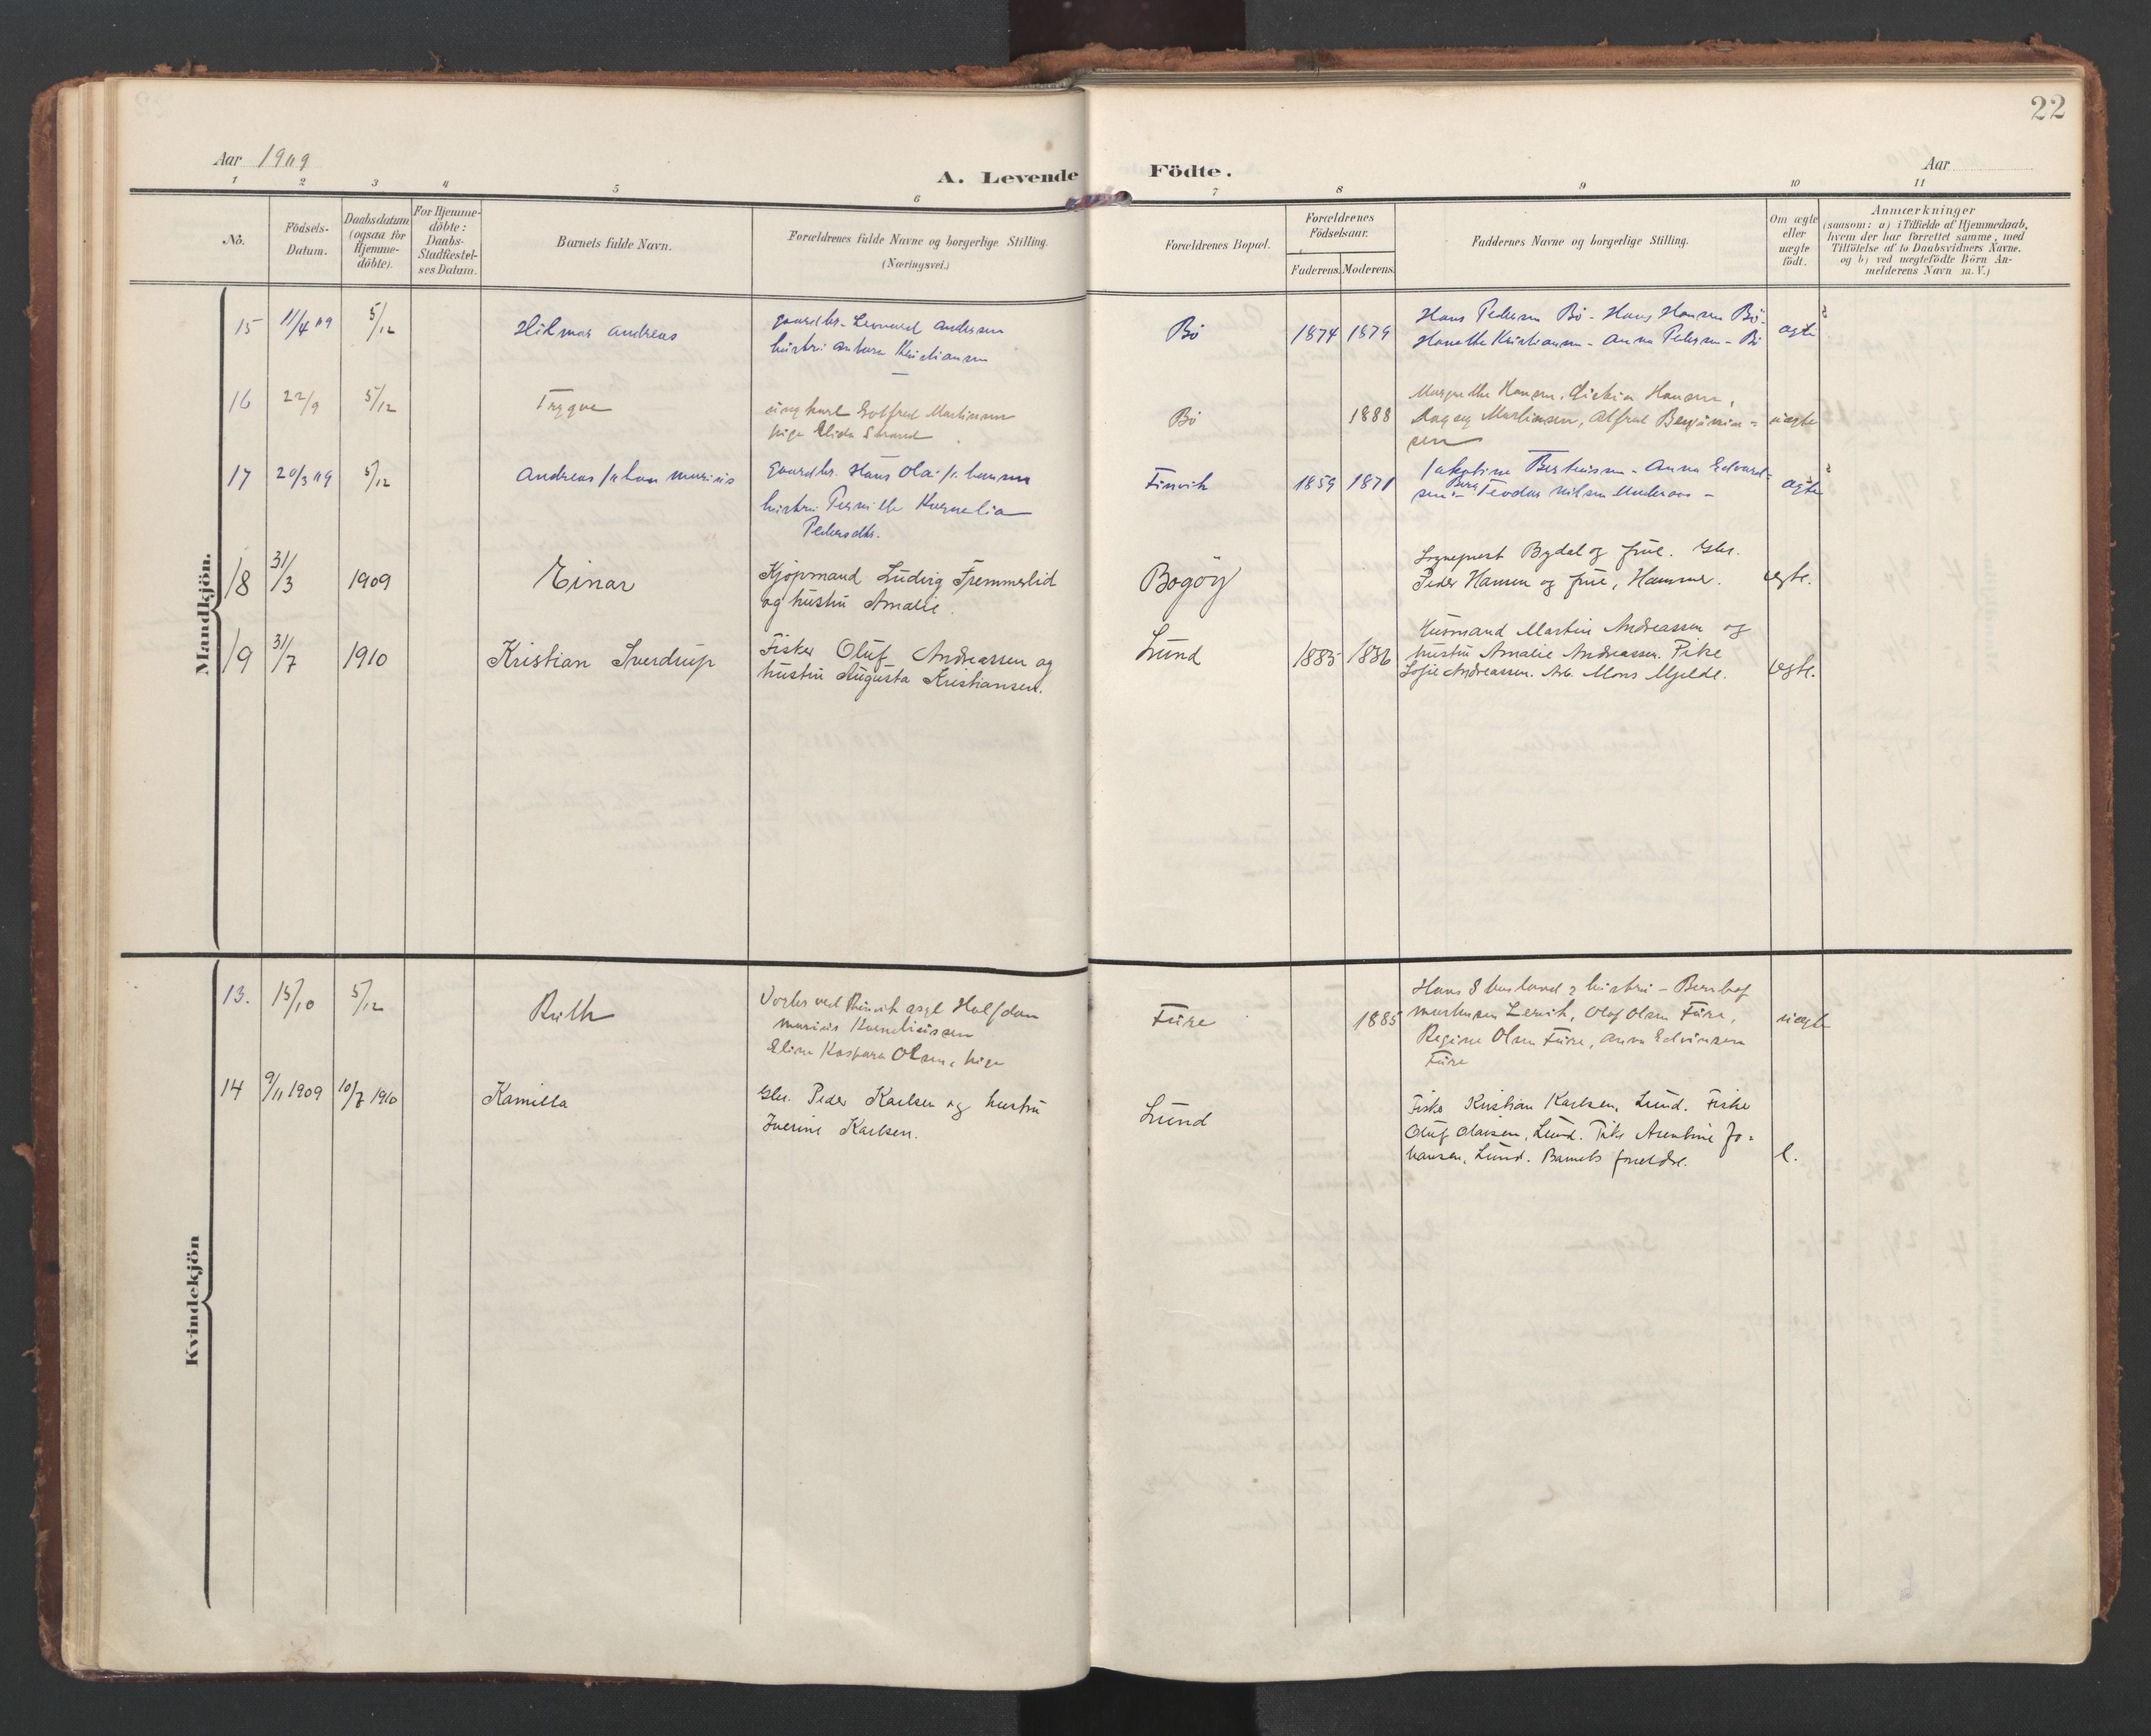 22
Aar 1909
A. Levende Födte.
Aar
1 2 3 4 5 6 7 8 9 10 11
No.
Födsels-
Datum.
Daabsdatum
(ogsaa for
Hjemme-
döbte).
For Hjemme-
döbte:
Daabs-
Stadfæstel-
ses Datum.
Barnets fulde Navn.
Forældrenes fulde Navne og borgerlige Stilling.
(Næringsvei.)
Forældrenes Bopæl.
Forældrenes
Födselsaar.
Faderens. Moderens.
Faddernes Navne og borgerlige Stilling.
Om ægte
eller
uægte
födt.
Anmærkninger
(saasom: a) i Tilfælde af Hjemmedaab,
hvem der har forrettet samme, med
Tilföielse af to Daabsvidners Navne.
og b) ved uægtefödte Börn An-
melderens Navn m. V.)
Mandkjön.
15 11/4 09 5/12 Hilmar Andreas
gaardbr. Leonard Andersen
hustru Antora Kristiansen
Bö 1874 1879
Hans Pedersen Bö - Hans Hansen Bö.
Hanette Kristiansen - Anna Pedersen - Bö
ægte
16 22/9 5/12 Trygve
ungkarl Gotfred Martinsen
pige Elida Strand
Bö 1888
Margrethe Hansen, Hansen,
Dagny Martinsen, Alfred Benjamin=
sen
uægte
17 20/3 09 5/12 Andreas Johan Marius
gaardbr. Hans Ola Johansen
hustru Pernille Kornelia
Pedersdtr.
Finvik 1859 1871
Jakobine Berthinsen - Anna Edvard=
sen - Berg Teodor Nilsen
ægte
18 31/3 1909 Einar
Kjöpmand Ludvig Fremmerlid
og hustru Amalie.
Bogöy
Sogneprest Bydal og frue. Gbr.
Peder Hansen og frue, Hammer.
ægte.
19 31/7 1910 Kristian Sverdrup
Fisker Oluf Andreassen og
hustru Augusta Kristiansen.
Lund 1885 1886
Husmand Martin Andreassen og
hustru Amalie Andreassen. Pike
Sofie Andreassen. Arb. Mons Mjelde.
ægte.
Kvindekjön
13. 15/10 5/12 Ruth
ved asyl Halfdan
Marius Korneliussen
Eline Kaspara Olsen, pige
Fure 1885
Hans husland & hustru -
Mortensen Lervik, Olaf Olsen Fure,
Regine Olsen Fure, Anna Edvinsen
Fure
uægte
14 9/11 1909 10/7 1910 Kamilla
Gbr. Peder Karlsen og hustru
Iverine Karlsen.
Lund
Fisker Kristian Karlsen, Lund. Fisker
Oluf Olaisen, Lund. Pike Arentine Jo=
hansen, Lund. Barnets foreldre.